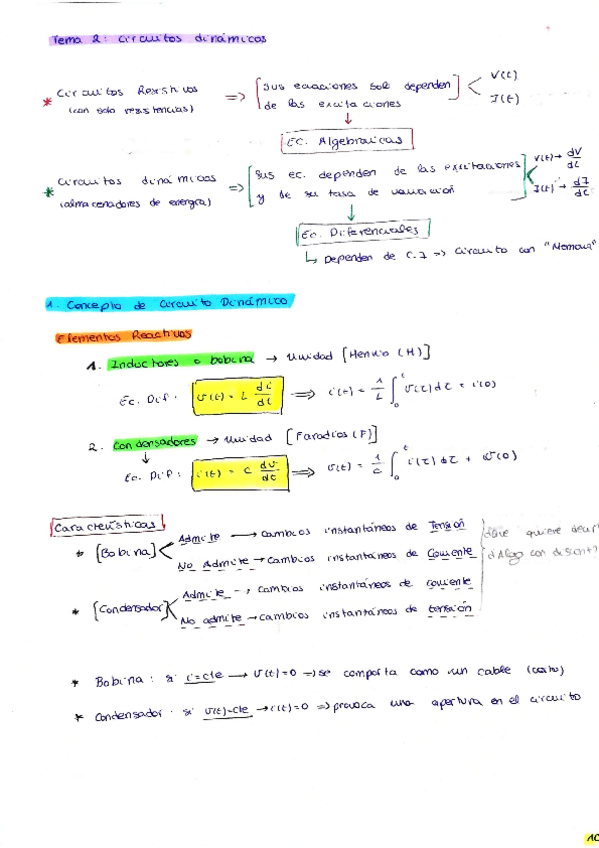 Tema 2: circuitos dinámicos
* Circuitos Resistivos (con solo resistencias) => [sus ecuaciones solo dependen de las excitaciones] < V(t) I(t)
↓
Ec. Algebraicas
* Circuitos dinámicos (almacenadores de energía) => [Sus ec. dependen de las excitaciones y de su tasa de variación < V(t) → dV/dt I(t) → dI/dt
↓
Ec. Diferenciales
↳ Dependen de C.I => circuito con "Memoria"
1. Concepto de Circuito Dinámico
Elementos Reactivos
1. Inductores o bobina → Unidad [Henrio (H)]
Ec. Dif: v(t) = L di/dt ⟹ i(t) = 1/L ∫₀ᵗ v(τ)dτ + i(0)
2. Condensadores → Unidad [Faradios (F)]
↓
Ec. Dif: i(t) = C dv/dt ⟹ v(t) = 1/C ∫₀ᵗ i(τ)dτ + v(0)
Características
* [Bobina] < Admite → cambios instantáneos de Tensión
No Admite → cambios instantáneos de Corriente
* [Condensador] < Admite → cambios instantáneos de corriente
No admite → cambios instantáneos de tensión
quiere decir
algo con
* Bobina: si i=cte → v(t)=0 => se comporta como un cable (corto)
* Condensador: si v(t)=cte → i(t)=0 => provoca una apertura en el circuito
10